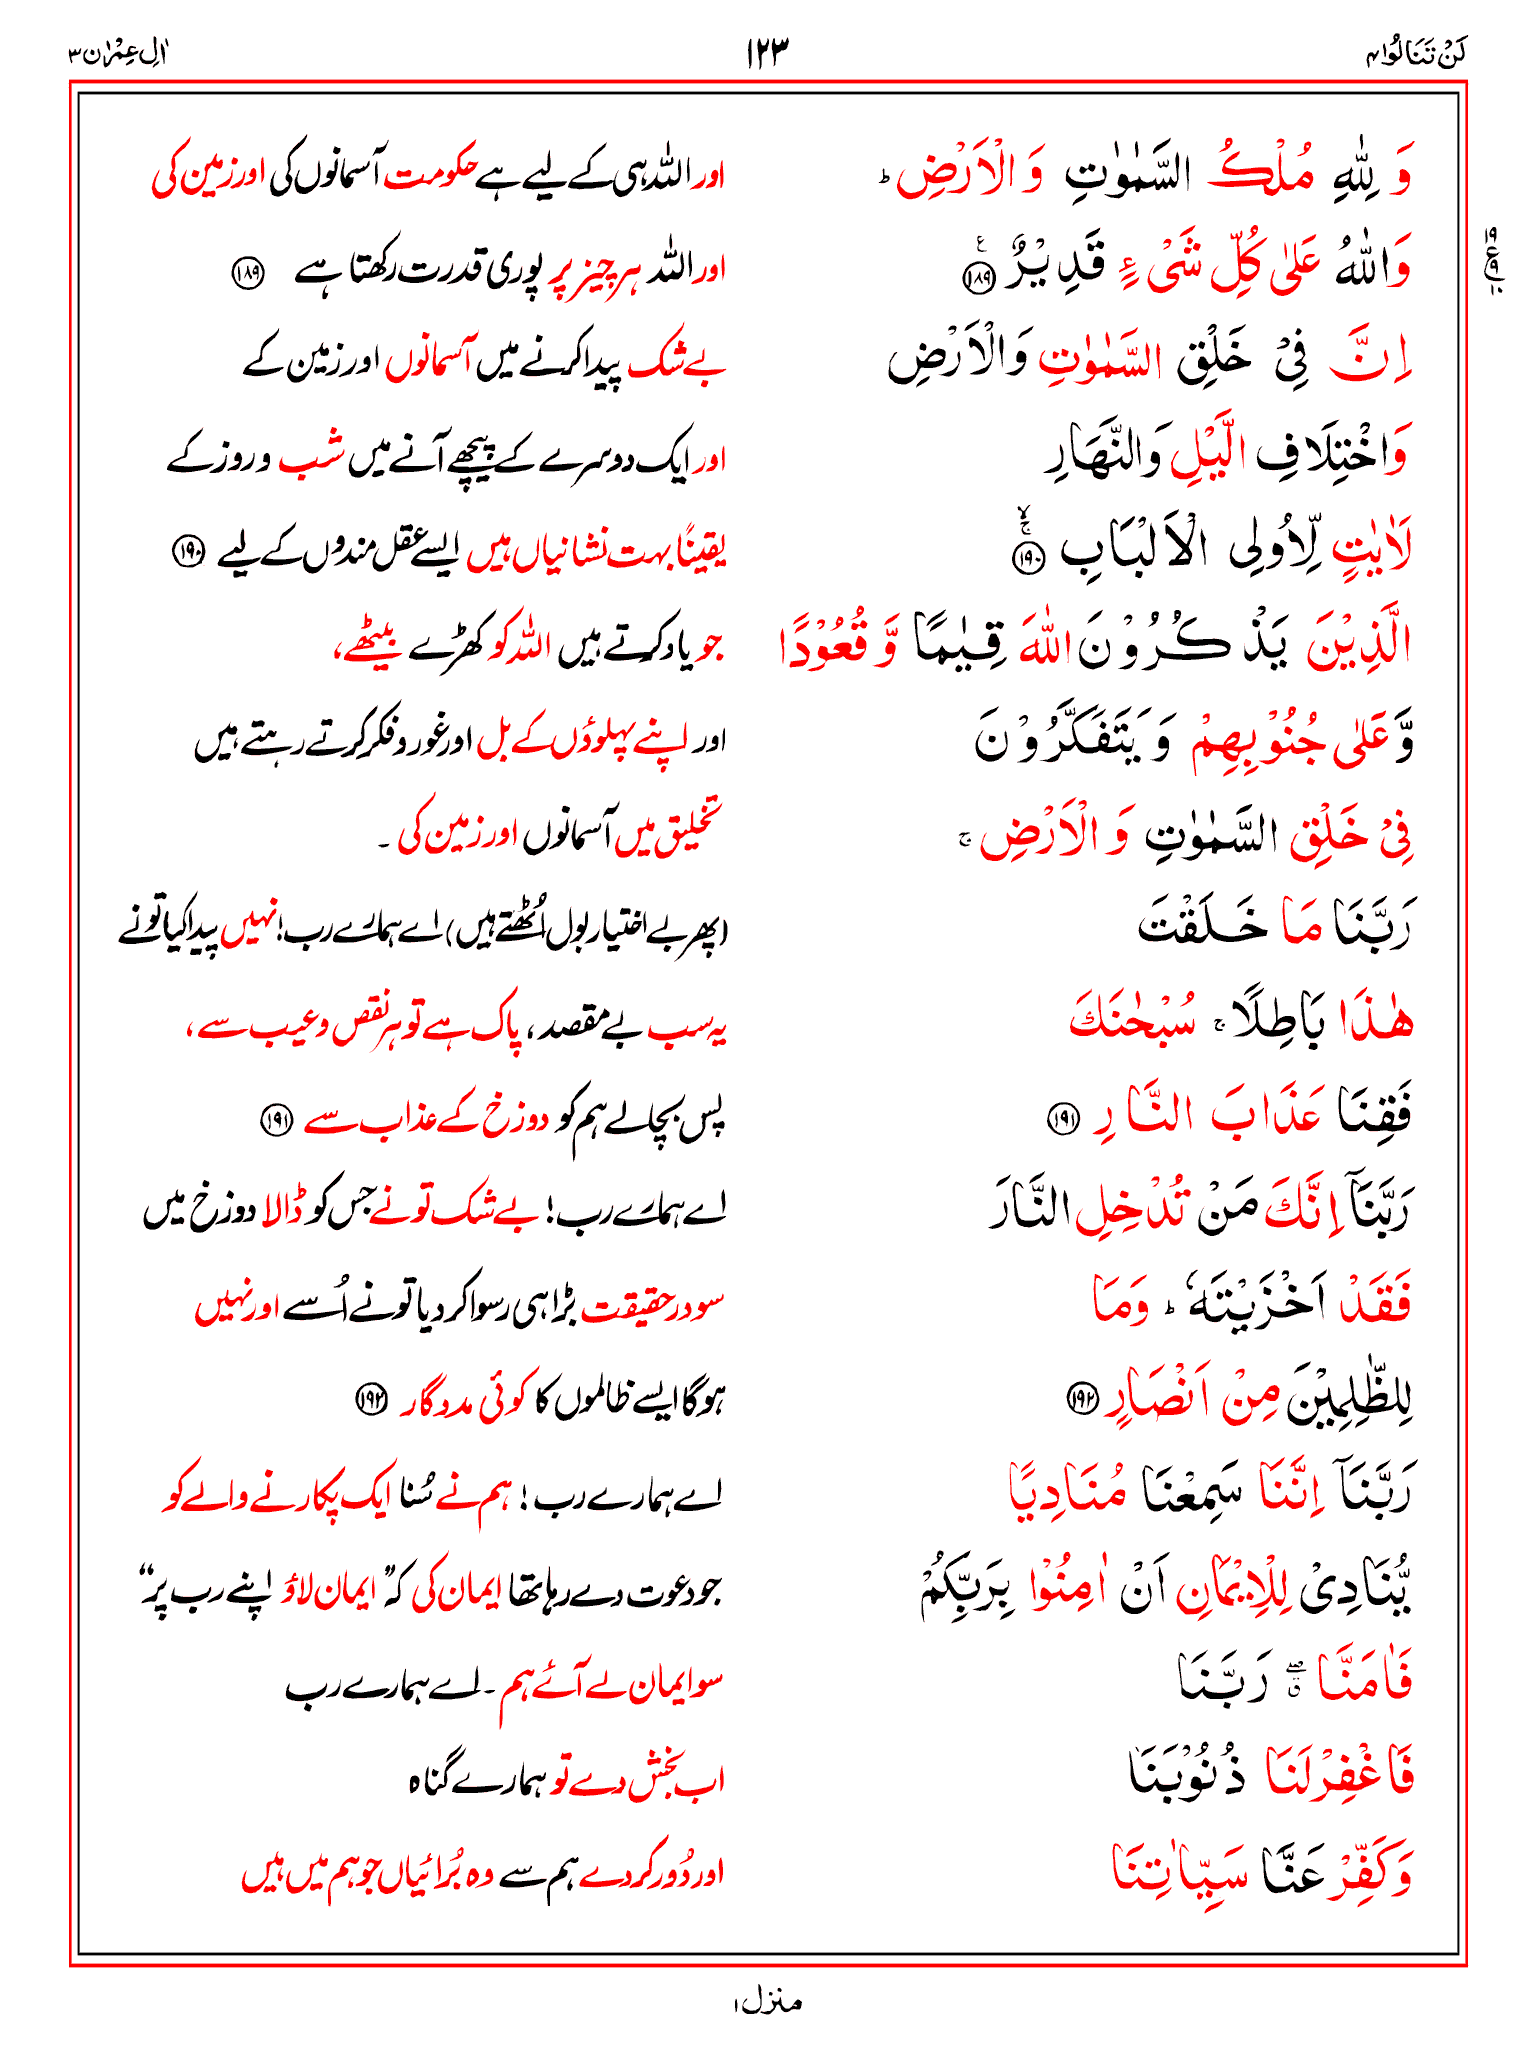 لَنْ تَنَالُوا ۴ ۱۲۳ اٰلِ عِمْرٰن ۳
وَ لِلّٰهِ مُلْكُ السَّمٰوٰتِ وَ الْاَرْضِ ؕ اور اللہ ہی کے لیے ہے حکومت آسمانوں کی اور زمین کی
وَاللّٰهُ عَلٰى كُلِّ شَیْءٍ قَدِیْرٌ ﴿۱۸۹﴾ اور اللہ ہر چیز پر پوری قدرت رکھتا ہے ﴿۱۸۹﴾
ع ۱۹ ۹ ۱۰
اِنَّ فِیْ خَلْقِ السَّمٰوٰتِ وَالْاَرْضِ بے شک پیدا کرنے میں آسمانوں اور زمین کے
وَاخْتِلَافِ الَّیْلِ وَالنَّهَارِ اور ایک دوسرے کے پیچھے آنے میں شب و روز کے
لَاٰیٰتٍ لِّاُولِی الْاَلْبَابِ ﴿۱۹۰﴾ۚۙ یقیناً بہت نشانیاں ہیں ایسے عقل مندوں کے لیے ﴿۱۹۰﴾
الَّذِیْنَ یَذْكُرُوْنَ اللّٰهَ قِیٰمًا وَّ قُعُوْدًا جو یاد کرتے ہیں اللہ کو کھڑے بیٹھے،
وَّعَلٰى جُنُوْبِهِمْ وَیَتَفَكَّرُوْنَ اور اپنے پہلوؤں کے بل اور غور و فکر کرتے رہتے ہیں
فِیْ خَلْقِ السَّمٰوٰتِ وَ الْاَرْضِ ۚ تخلیق میں آسمانوں اور زمین کی ۔
رَبَّنَا مَا خَلَقْتَ (پھر بے اختیار بول اُٹھتے ہیں) اے ہمارے رب! نہیں پیدا کیا تو نے
هٰذَا بَاطِلًا ۚ سُبْحٰنَكَ یہ سب بے مقصد، پاک ہے تو ہر نقص و عیب سے،
فَقِنَا عَذَابَ النَّارِ ﴿۱۹۱﴾ پس بچالے ہم کو دوزخ کے عذاب سے ﴿۱۹۱﴾
رَبَّنَاۤ اِنَّكَ مَنْ تُدْخِلِ النَّارَ اے ہمارے رب! بے شک تو نے جس کو ڈالا دوزخ میں
فَقَدْ اَخْزَیْتَهٗ ؕ وَمَا سو درحقیقت بڑا ہی رسوا کر دیا تو نے اُسے اور نہیں
لِلظّٰلِمِیْنَ مِنْ اَنْصَارٍ ﴿۱۹۲﴾ ہوگا ایسے ظالموں کا کوئی مددگار ﴿۱۹۲﴾
رَبَّنَاۤ اِنَّنَا سَمِعْنَا مُنَادِیًا اے ہمارے رب! ہم نے سُنا ایک پکارنے والے کو
یُّنَادِیْ لِلْاِیْمَانِ اَنْ اٰمِنُوْا بِرَبِّكُمْ جو دعوت دے رہا تھا ایمان کی کہ ”ایمان لاؤ اپنے رب پر“
فَاٰمَنَّا ۖۗ رَبَّنَا سو ایمان لے آئے ہم ۔ اے ہمارے رب
فَاغْفِرْلَنَا ذُنُوْبَنَا اب بخش دے تو ہمارے گناہ
وَكَفِّرْ عَنَّا سَیِّاٰتِنَا اور دُور کر دے ہم سے وہ بُرائیاں جو ہم میں ہیں
منزل ۱